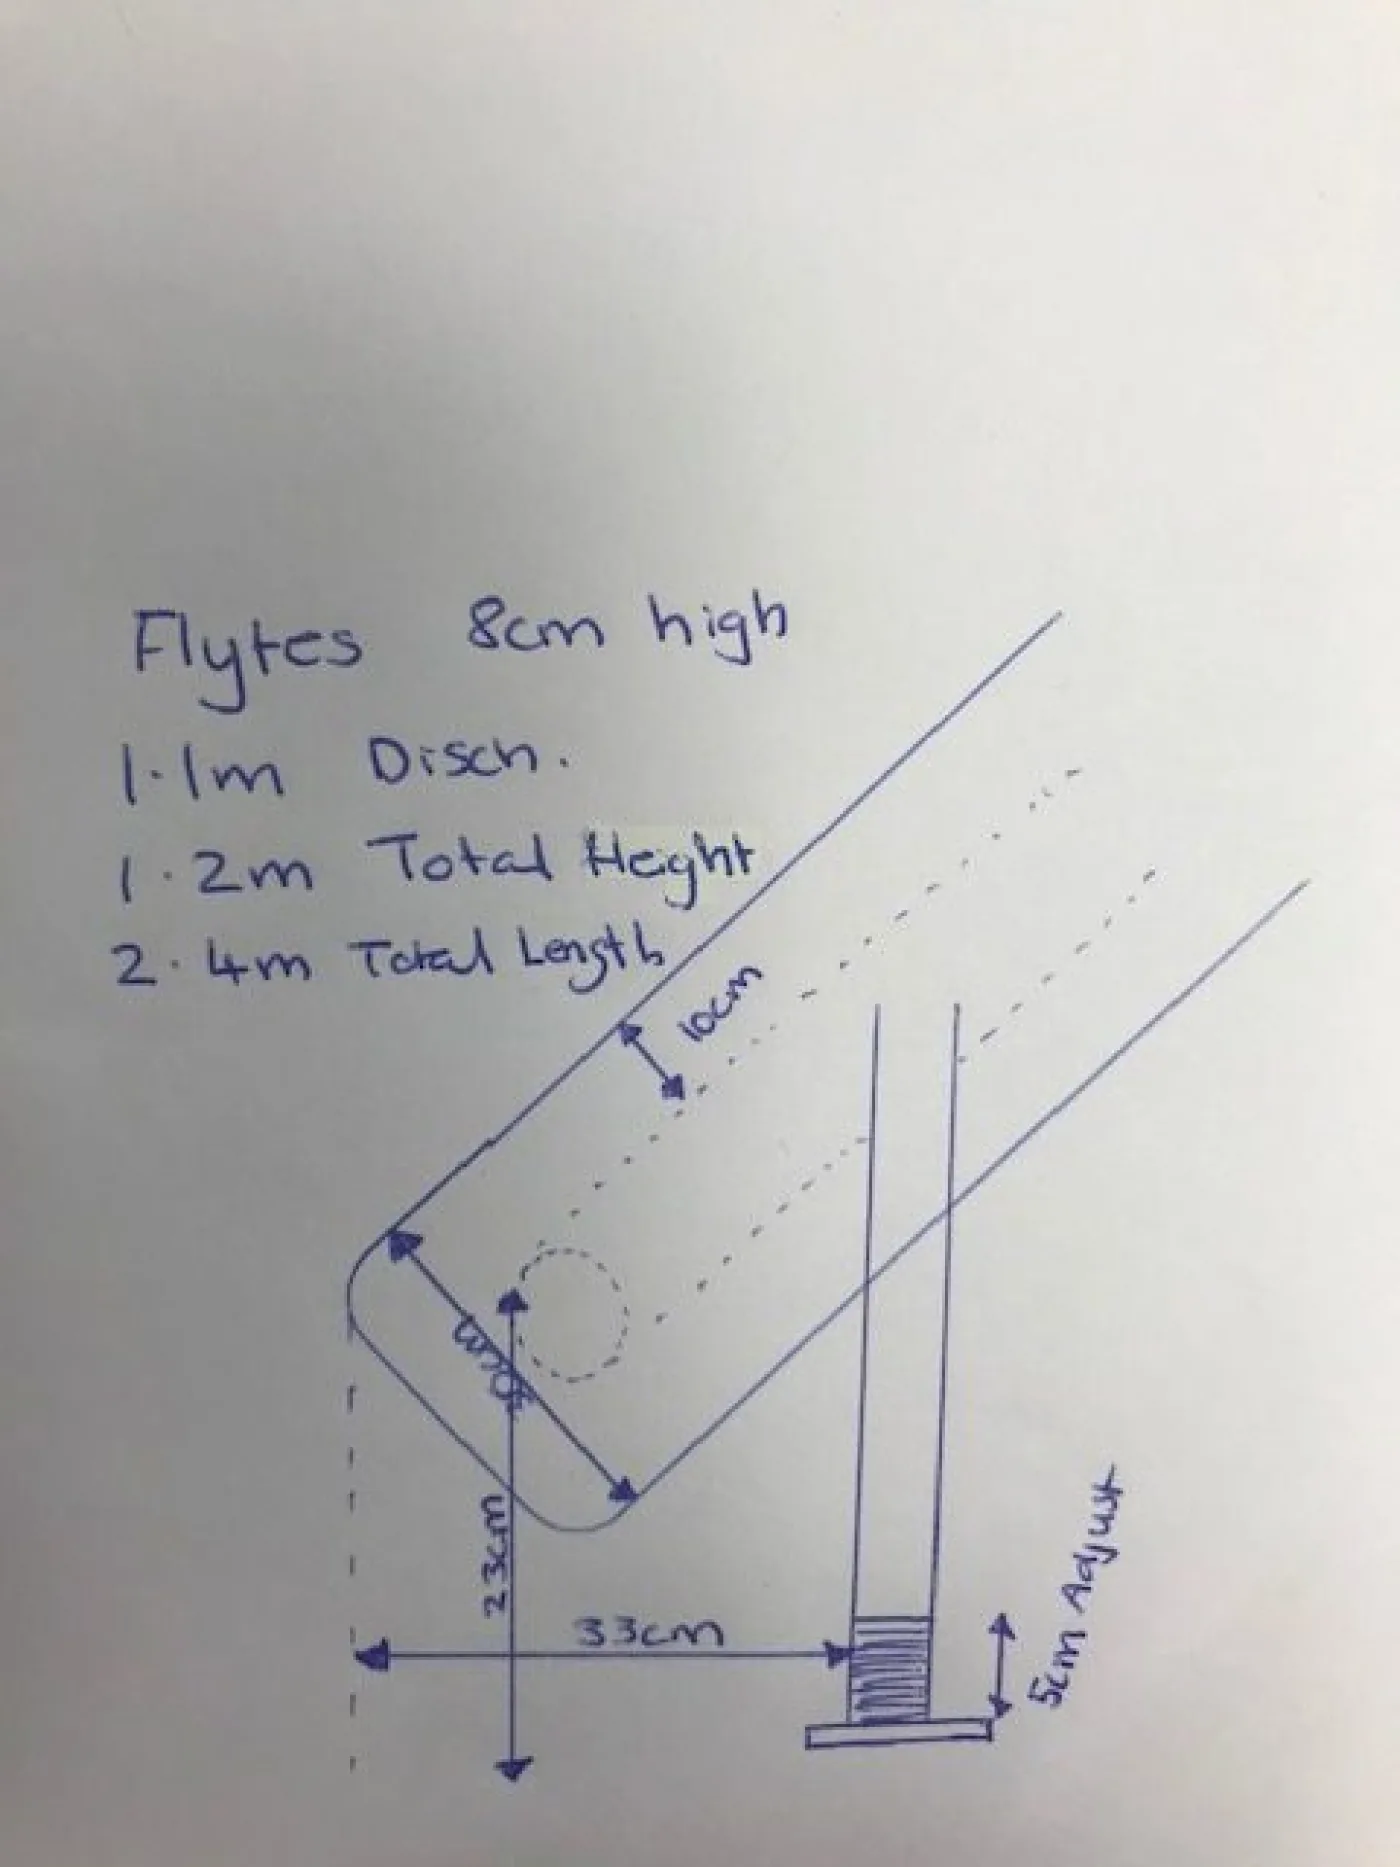 Flytes 8cm high
1.1m Disch.
1.2m Total Height
2.4m Total Length
10cm
23cm
33cm
5cm Adjust